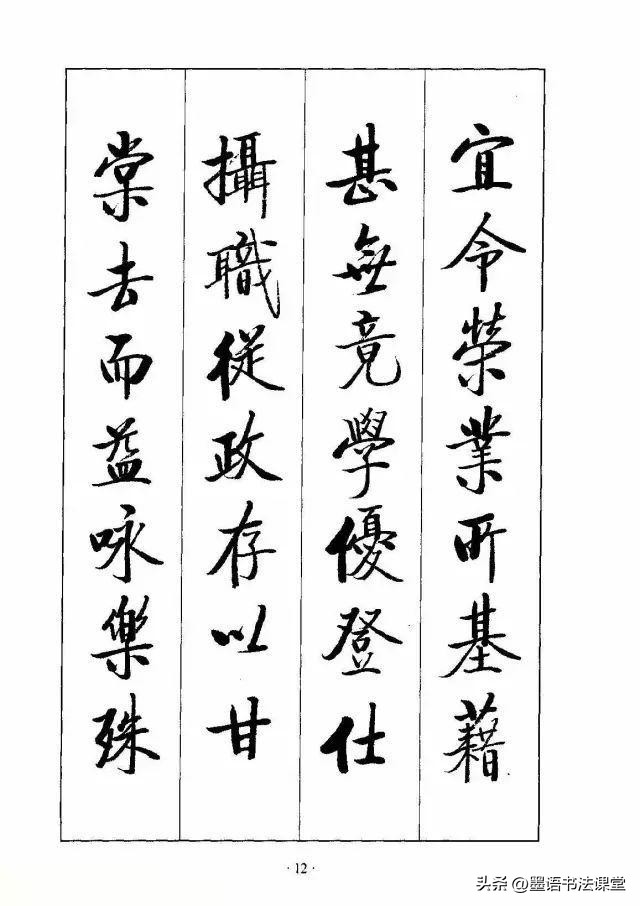 宜令榮業所基藉
甚無竟學優登仕
攝職從政存以甘
棠去而益咏樂殊
·12·
头条@墨语书法课堂